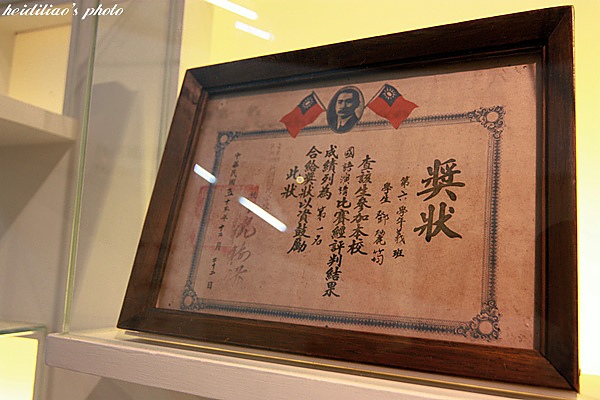 heidiliao's photo
獎狀
第六學年義班
學生 鄧麗筠
查該生參加本校
國語演講比賽經評判結果
成績列為第一名
合給獎狀以資鼓勵
此狀
中華民國五十三年十二月
日